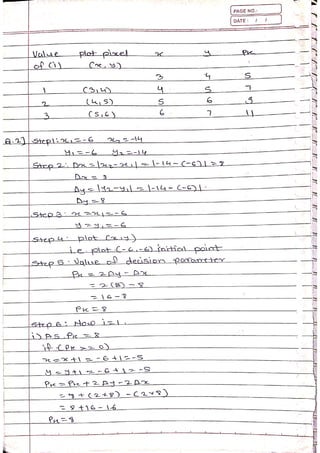 PAGE NO.:
DATE: / /
Value plot pixel x y Pk
of (i) (x, y)
3 4 5
1 (3,4) 4 5 7
2 (4,5) 5 6 9
3 (5,6) 6 7 11
Q.2] Step1: x1=-6 x2=-14
y1=-6 y2=-14
Step 2: Dx = |x2-x1| = |-14-(-6)| = 8
Dx = 8
Dy = |y2-y1| = |-14-(-6)|
Dy = 8
Step 3: x = x1 = -6
y = y1 = -6
Step 4: plot (x,y)
i.e plot (-6,-6) initial point
Step 5: Value of decision parameter
Pk = 2Dy - Dx
= 2(8) - 8
= 16-8
Pk = 8
Step 6: Now i=1.
i) As Pk = 8
if (Pk >= 0)
x = x+1 = -6+1 = -5
y = y+1 = -6+1 = -5
Pk = Pk + 2Dy - 2Dx
= 8 + (2*8) - (2*8)
= 8 + 16 - 16
Pk = 8